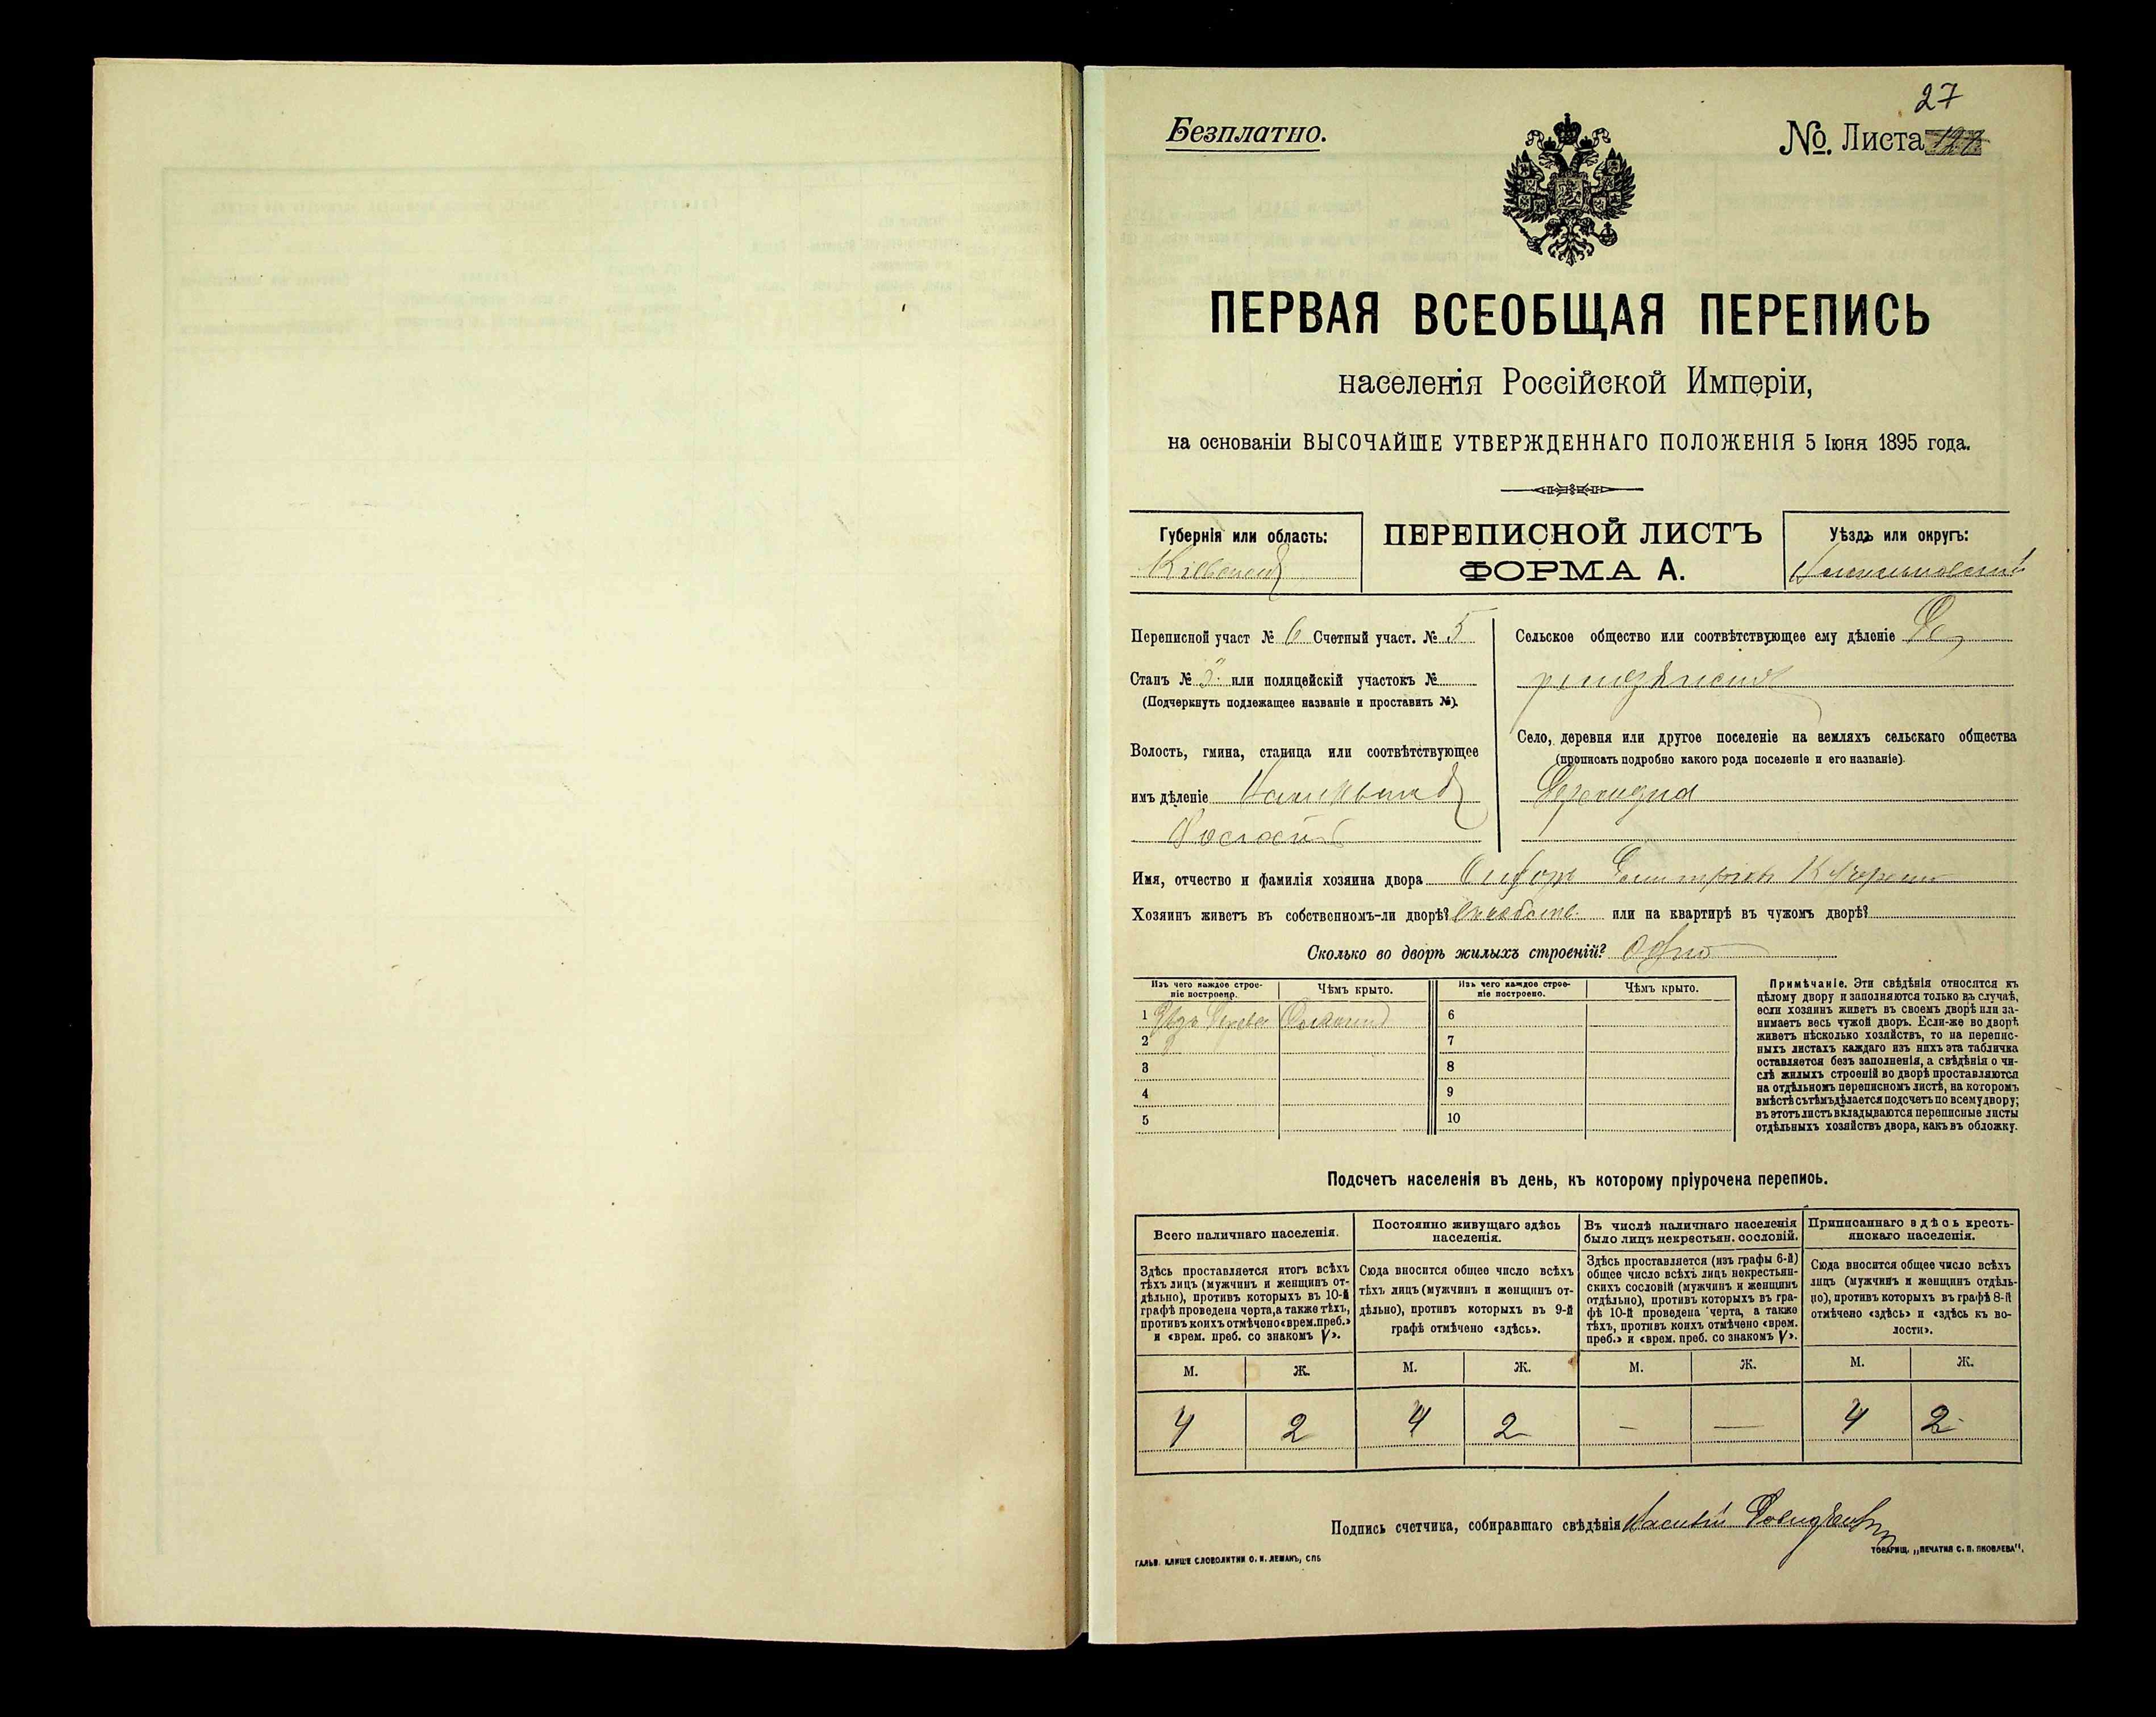 27
Безплатно.
№. Листа
ПЕРВАЯ ВСЕОБЩАЯ ПЕРЕПИСЬ
населенія Россійской Имперіи,
на основаніи ВЫСОЧАЙШЕ УТВЕРЖДЕННАГО ПОЛОЖЕНІЯ 5 Іюня 1895 года.
Губернія или область:
Кіевская
ПЕРЕПИСНОЙ ЛИСТЪ
ФОРМА А.
Уѣздъ или округъ:
Переписной участ № 6 Счетный участ. № 5
Станъ № или полицейскій участокъ №
(Подчеркнуть подлежащее названіе и проставить №).
Волость, гмина, станица или соотвѣтствующее
имъ дѣленіе
Сельское общество или соотвѣтствующее ему дѣленіе
Село, деревня или другое поселеніе на земляхъ сельскаго общества
(прописать подробно какого рода поселеніе и его названіе).
Имя, отчество и фамилія хозяина двора
Хозяинъ живетъ въ собственномъ-ли дворѣ? или на квартирѣ въ чужомъ дворѣ?
Сколько во дворѣ жилыхъ строеній? Одно
Изъ чего каждое строе-
ніе построено.
Чѣмъ крыто.
Изъ чего каждое строе-
ніе построено.
Чѣмъ крыто.
1 Изъ дерева Соломой
2
3
4
5
6
7
8
9
10
Примѣчаніе. Эти свѣдѣнія относятся къ
цѣлому двору и заполняются только въ случаѣ,
если хозяинъ живетъ въ своемъ дворѣ или за-
нимаетъ весь чужой дворъ. Если-же во дворѣ
живетъ нѣсколько хозяйствъ, то на перепис-
ныхъ листахъ каждаго изъ нихъ эта табличка
оставляется безъ заполненія, а свѣдѣнія о чи-
слѣ жилыхъ строеній во дворѣ проставляются
на отдѣльномъ переписномъ листѣ, на которомъ
вмѣстѣ съ тѣмъ дѣлается подсчетъ по всему двору;
въ этотъ листъ вкладываются переписные листы
отдѣльныхъ хозяйствъ двора, какъ въ обложку.
Подсчетъ населенія въ день, къ которому пріурочена перепись.
Всего наличнаго населенія.
Здѣсь проставляется итогъ всѣхъ
тѣхъ лицъ (мужчинъ и женщинъ от-
дѣльно), противъ которыхъ въ 10-й
графѣ проведена черта, а также тѣхъ,
противъ коихъ отмѣчено «врем. преб.»
и «врем. преб. со знакомъ V».
Постоянно живущаго здѣсь
населенія.
Сюда вносится общее число всѣхъ
тѣхъ лицъ (мужчинъ и женщинъ от-
дѣльно), противъ которыхъ въ 9-й
графѣ отмѣчено «здѣсь».
Въ числѣ наличнаго населенія
было лицъ некрестьян. сословій.
Здѣсь проставляется (изъ графы 6-й)
общее число всѣхъ лицъ некрестьян-
скихъ сословій (мужчинъ и женщинъ
отдѣльно), противъ которыхъ въ гра-
фѣ 10-й проведена черта, а также
тѣхъ, противъ коихъ отмѣчено «врем.
преб.» и «врем. преб. со знакомъ V».
Приписаннаго здѣсь кресть-
янскаго населенія.
Сюда вносится общее число всѣхъ
лицъ (мужчинъ и женщинъ отдѣль-
но), противъ которыхъ въ графѣ 8-й
отмѣчено «здѣсь» и «здѣсь къ во-
лости».
М. Ж. М. Ж. М. Ж. М. Ж.
4 2 4 2 — — 4 2
Подпись счетчика, собиравшаго свѣдѣнія
ГАЛЬВ. КЛИШЕ СЛОВОЛИТНИ О. И. ЛЕМАНЪ, СПБ
ТОВАРИЩ. „ПЕЧАТНЯ С. П. ЯКОВЛЕВА".